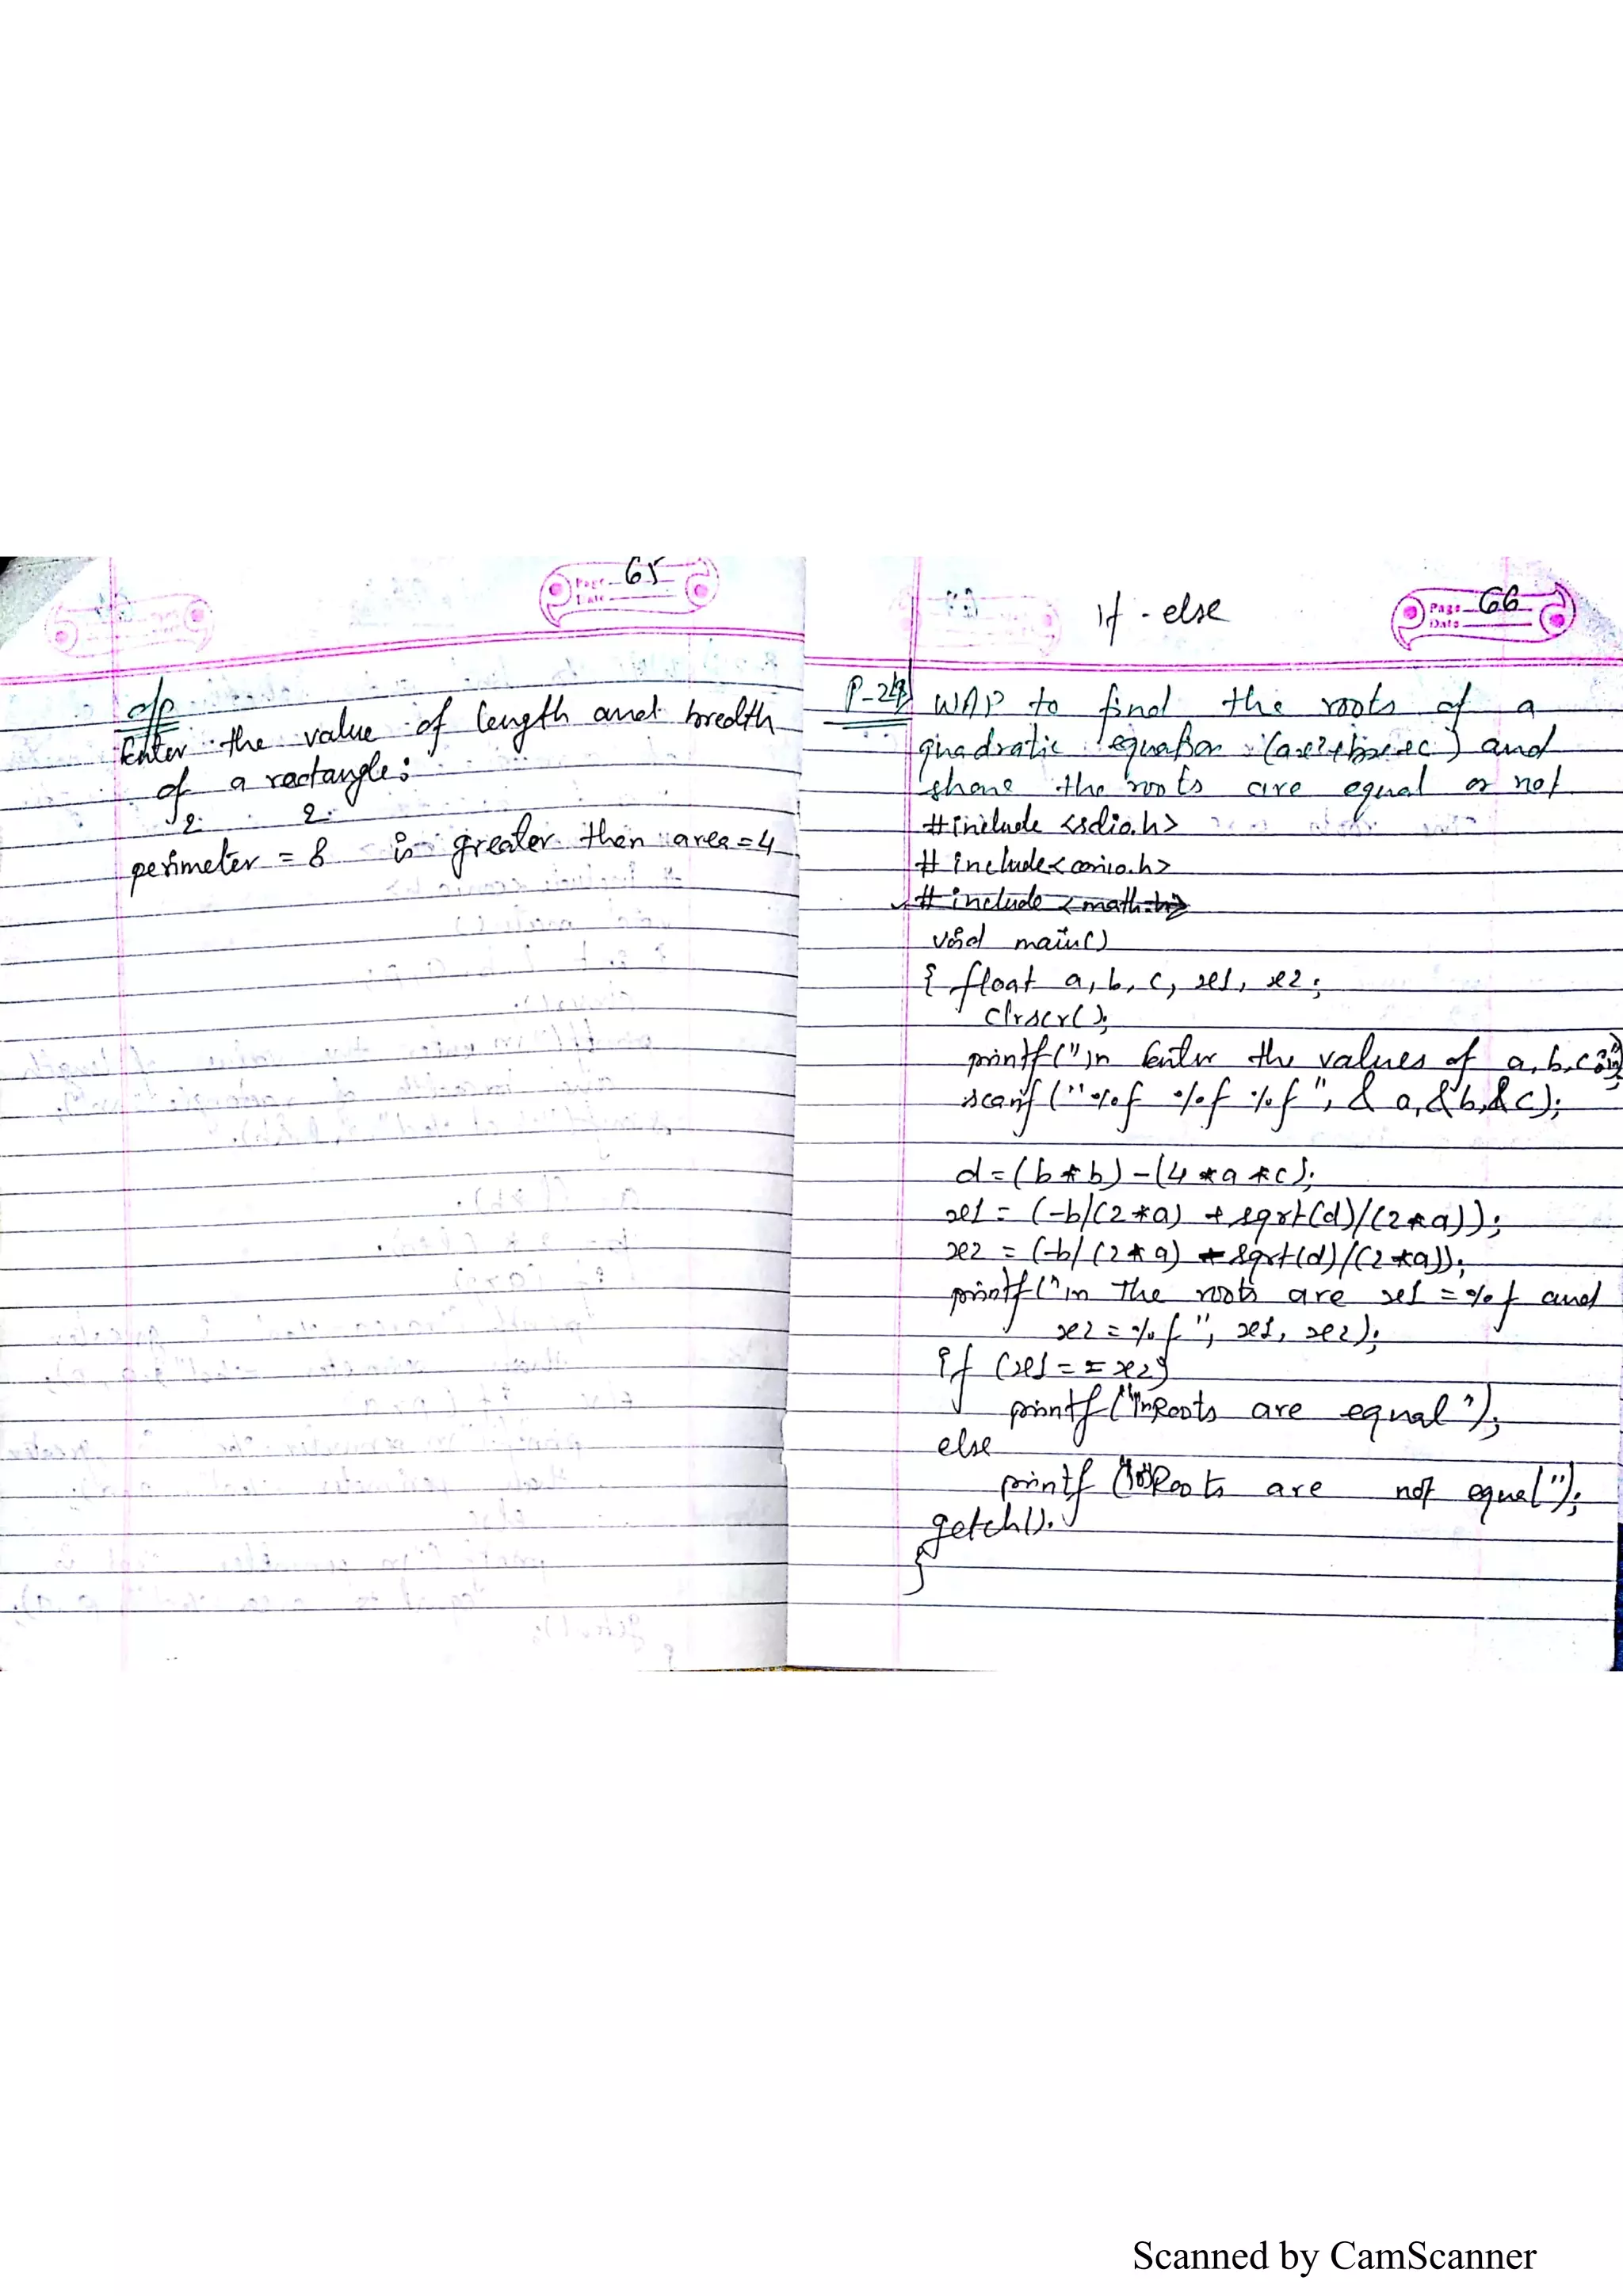 Page 65
Date
o/p
Enter the value of length and bredth
of a ractangle:
2 2
perimeter = 8 is greater then area=4
If - else
Page 66
Date
WAP to find the roots of a
quadratic equation (ax2+bx+c) and
the roots are equal or not
#include <sdio.h>
#include<conio.h>
#include <math.h>
void main()
{ float a, b, c, x1, x2;
clrscr();
printf("\n Enter the values of a,b,c:\n");
scanf("%f %f %f", &a,&b,&c);
d=(b*b)-(4*a*c);
x1=(-b/(2*a) + sqrt(d)/(2*a));
x2=(-b/(2*a) - sqrt(d)/(2*a));
printf("\n The roots are x1=%f and
x2=%f", x1, x2);
if (x1==x2)
printf("\nRoots are equal");
else
printf("\nRoots are not equal");
getch();
}
Scanned by CamScanner